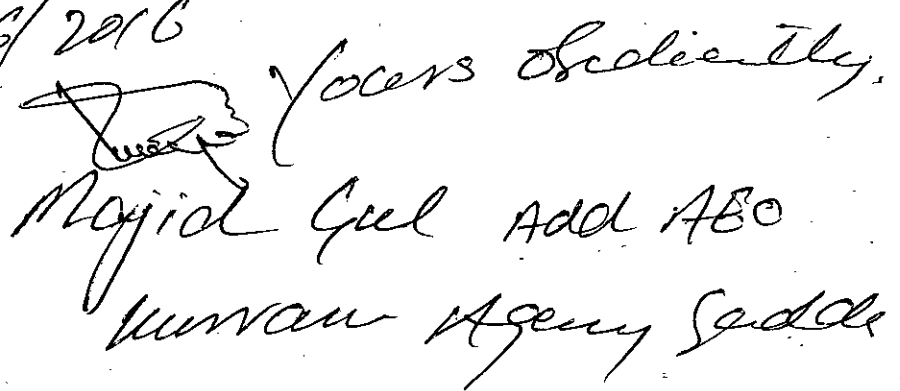 6/2016
Yours obediently,
Majid Gul Add AEO
Kurram Agency Sadda